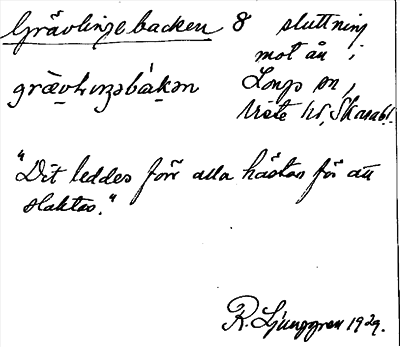 Grävlingebacken 8 sluttning
mot ån i
grävlıŋəbàkən Longs sn,
Viste hd, Skarab.l.
"Dit leddes förr alla hästar för att
slaktas."
R. Ljunggren 1929.